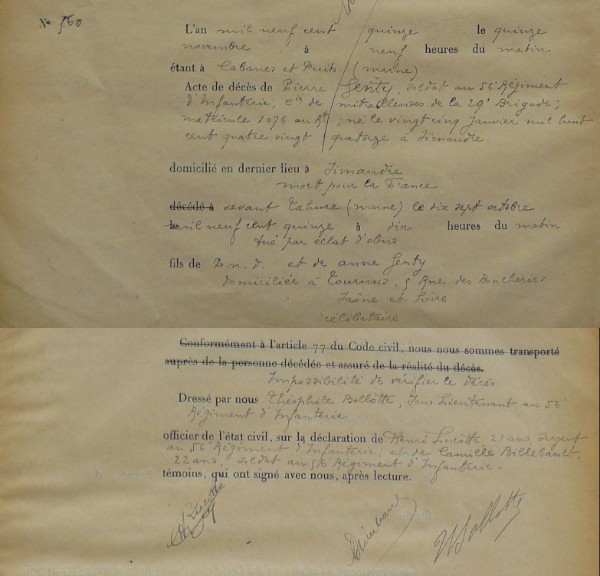 N° 160
L'an mil neuf cent quinze le quinze
novembre à neuf heures du matin
étant à Cabanes et Puits (marne)
Acte de décès de Pierre Genty, soldat au 56e Régiment
d'Infanterie, Cie de mitrailleuses de la 29e Brigade;
matricule 1076 au Rt; né le vingt cinq janvier mil huit
cent quatre vingt quatorze à Simandre
domicilié en dernier lieu à Simandre
mort pour la France
décédé à devant Tahure (marne) le dix sept octobre
mil neuf cent quinze à dix heures du matin
tué par éclat d'obus
fils de D.n.d. et de anne Genty
domiciliée à Tournus, 5 Rue des Boucheries
Saône et Loire
célibataire
Conformément à l'article 77 du Code civil, nous nous sommes transporté
auprès de la personne décédée et assuré de la réalité du décès.
Impossibilité de vérifier le décès
Dressé par nous Théophile Bollotte, Sous Lieutenant au 56e
Régiment d'Infanterie
officier de l'état civil, sur la déclaration de Henri 21 ans, sergent
au 56e Régiment d'Infanterie; et de Camille Billebault,
22 ans, soldat au 56 Régiment d'Infanterie.
témoins, qui ont signé avec nous, après lecture.
Bollotte